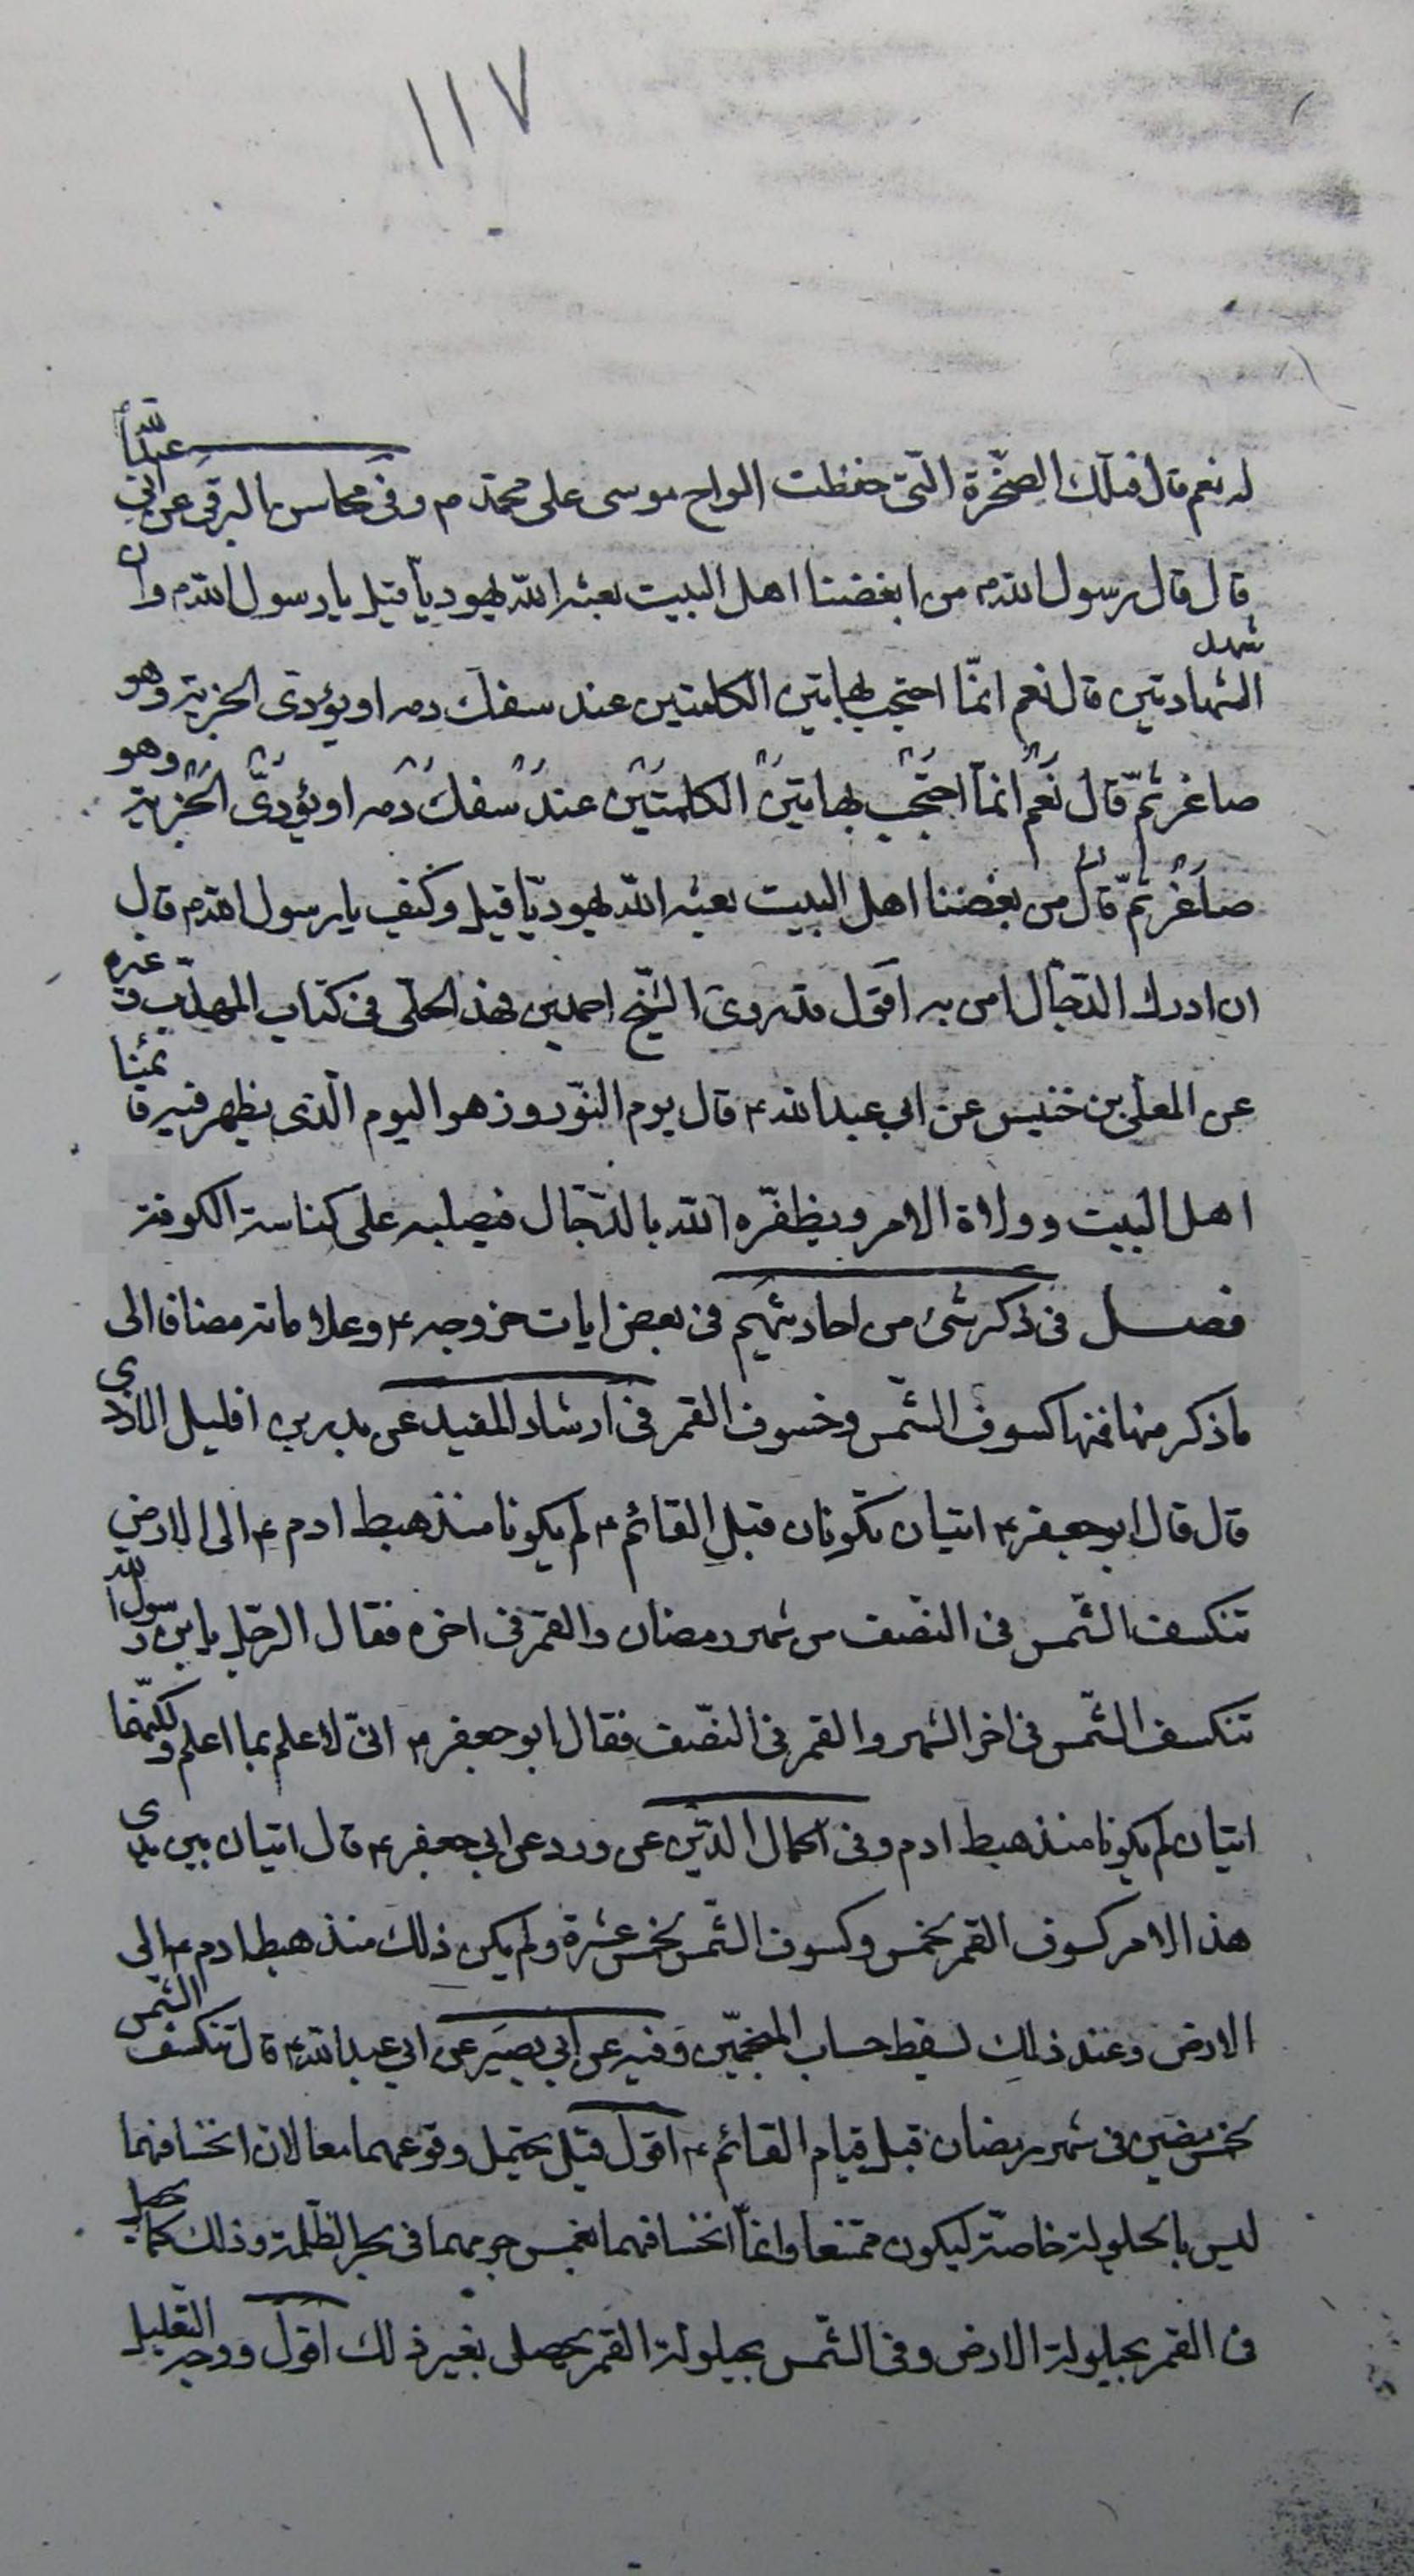 ١١٧
له نعم قال فتلك الصّخرة الّتى حفظت الواح موسى على محمّد ص وفى محاسن البرقى عن ابى عبد الله ع
قال قال رسول الله ص من ابغضنا اهل البيت بعثه الله يهوديّا قيل يا رسول الله ص وان شهد
الشهادتين قال نعم انّما احتجب بهاتين الكلمتين عند سفك دمه او يؤدى الجزية وهو
صاغر ثمّ قال نعم انما احتجب بهاتين الكلمتين عند سفك دمه او يؤدّى الجزية وهو
صاغر ثمّ قال من بغضنا اهل البيت بعثه الله يهوديّا قيل وكيف يا رسول الله ص قال
ان ادرك الدّجّال امن به اقول قد روى الشّيخ احمد بن فهد الحلّى فى كتاب المهذّب وغيره
عن المعلى بن خنيس عن ابي عبد الله ع قال يوم النّوروز هو اليوم الّذى يظهر فيه قائمنا
اهل البيت وولاة الامر ويظفّره الله بالدّجّال فيصلبه على كناسة الكوفة
فصل فى ذكر شئ من احاديثهم فى بعض ايات خروجه ع وعلاماته مضافا الى
ما ذكر منها فمنها كسوف الشّمس وخسوف القمر فى ارشاد المفيد عن بدر بن اخليل الازدى
قال قال ابو جعفر ع ايتان تكونان قبل القائم ع لم يكونا منذ هبط ادم ع الى الارض
تنكسف الشّمس فى النّصف من شهر رمضان والقمر فى اخره فقال الرّجل يا بن رسول الله
تنكسف الشّمس فى اخر الشهر والقمر فى النّصف فقال ابو جعفر ع انّى لاعلم بما اعلم ولكنّهما
ايتان لم يكونا منذ هبط ادم وفى اكمال الدّين عن ورد عن ابي جعفر ع قال ايتان بين يدى
هذا الامر كسوف القمر بخمس وكسوف الشّمس بخمس عشرة ولم يكن ذلك منذ هبط ادم ع الى
الارض وعند ذلك يسقط حساب المنجّمين وفيه عن ابي بصير عن ابي عبد الله ع قال تنكسف الشّمس
بخمس مضين فى شهر رمضان قبل قيام القائم ع اقول قيل يحتمل وقوعهما معا لان انخسافهما
ليس بالحيلولة خاصّة ليكون ممتنعا وانّما انخسافهما بغمس جرمهما فى بحر الظّلمة وذلك كما يحصل
فى القمر بحيلولة الارض وفى الشّمس بحيلولة القمر يحصل بغير ذلك اقول ووجه التّعليل